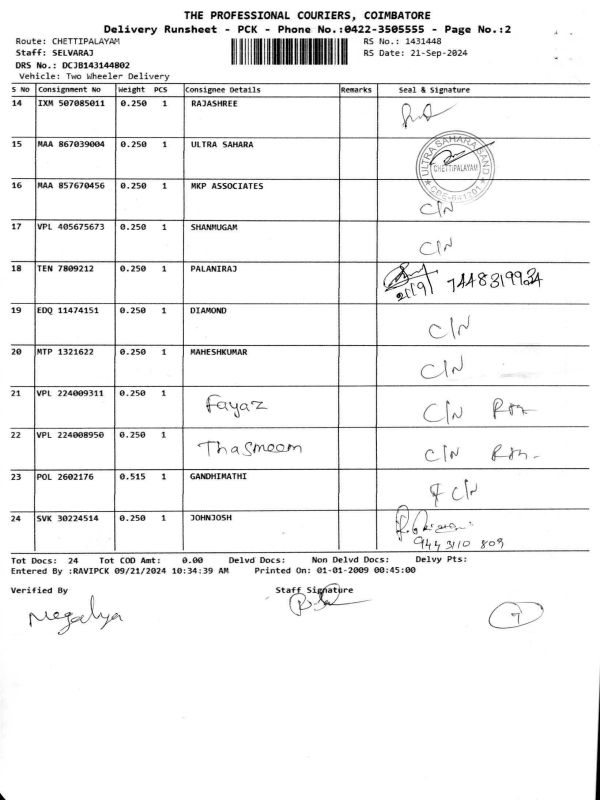 THE PROFESSIONAL COURIERS, COIMBATORE
Delivery Runsheet - PCK - Phone No.:0422-3505555 - Page No.:2
Route: CHETTIPALAYAM RS No.: 1431448
Staff: SELVARAJ RS Date: 21-Sep-2024
DRS No.: DCJB143144802
Vehicle: Two Wheeler Delivery
S No Consignment No Weight PCS Consignee Details Remarks Seal & Signature
14 IXM 507085011 0.250 1 RAJASHREE
15 MAA 867039004 0.250 1 ULTRA SAHARA
ULTRA SAHARA SAND
CHETTIPALAYAM
CBE-641201
16 MAA 857670456 0.250 1 MKP ASSOCIATES C/N
17 VPL 405675673 0.250 1 SHANMUGAM C/N
18 TEN 7809212 0.250 1 PALANIRAJ 21/9/ 7448319934
19 EDQ 11474151 0.250 1 DIAMOND C/N
20 MTP 1321622 0.250 1 MAHESHKUMAR C/N
21 VPL 224009311 0.250 1 Fayaz C/N
22 VPL 224008950 0.250 1 Thasmeem C/N
23 POL 2602176 0.515 1 GANDHIMATHI C/N
24 SVK 30224514 0.250 1 JOHNJOSH
944 3110 803
Tot Docs: 24 Tot COD Amt: 0.00 Delvd Docs: Non Delvd Docs: Delvy Pts:
Entered By :RAVIPCK 09/21/2024 10:34:39 AM Printed On: 01-01-2009 00:45:00
Verified By Staff Signature
Megalya
7